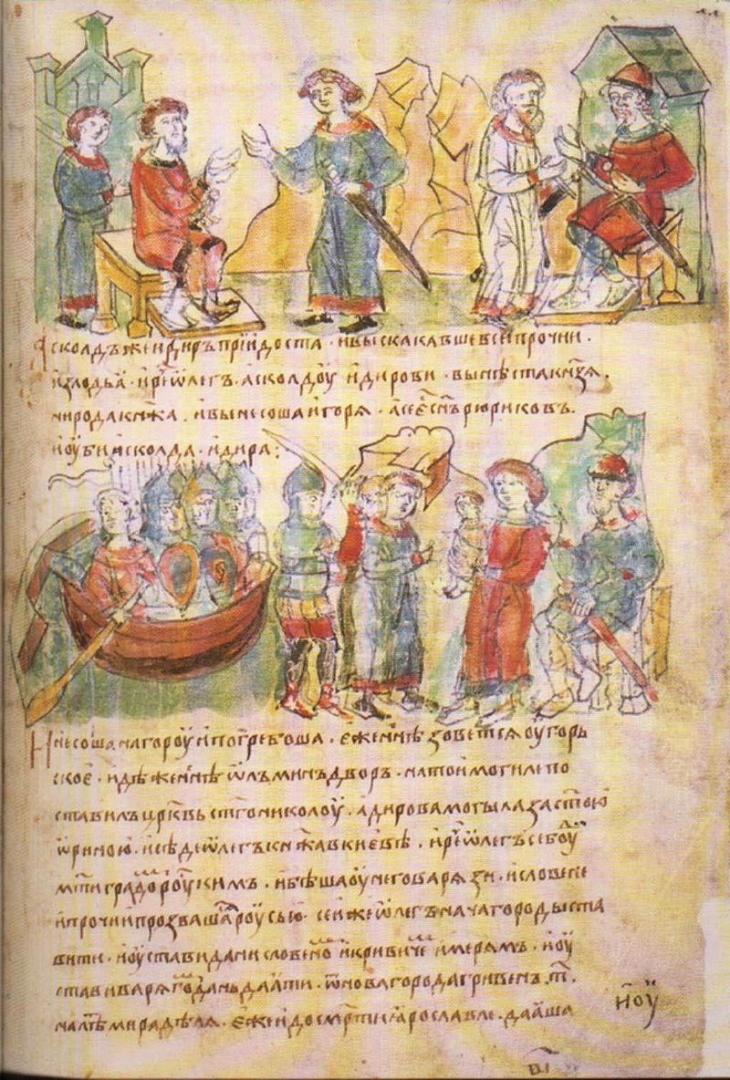 Асколдъ же и Диръ придоста · и выскакавше вси прочии ·
из лодьӕ · и реч Ѡлегъ · Асколдоу и Дирови · вы нѣста кнзѧ ·
ни рода кнѧжа · и вынесоша Игорѧ · а се єс снъ Рюриковъ ·
и оубиша Асколда · и Дира :
И несоша на гороу и погребоша · еже ннѣ зоветсѧ Оугорь
скоє · идѣже ннѣ Ѡлъминъ дворъ · на той могиле по
ставилъ црквь стго Николоу · а Дирова могыла за стою
Ѡриною · и сѣде Ѡлегъ кнѧжа в Києвѣ · и реч Ѡлегъ се боуди
мти градомъ роускимъ · и бѣша оу него варѧзи · и словене
и прочии прозвашасѧ роусью · сей же Ѡлегъ нача городы ста
вити · и оустави дани словеномъ и кривичемъ и мерѧмъ · и оу
стави варѧгомъ дань даѧти · ѿ Новагорода гривенъ · т ·
на лѣто мира дѣлѧ · еже и до смрти Ӕрославле даӕша
и оу